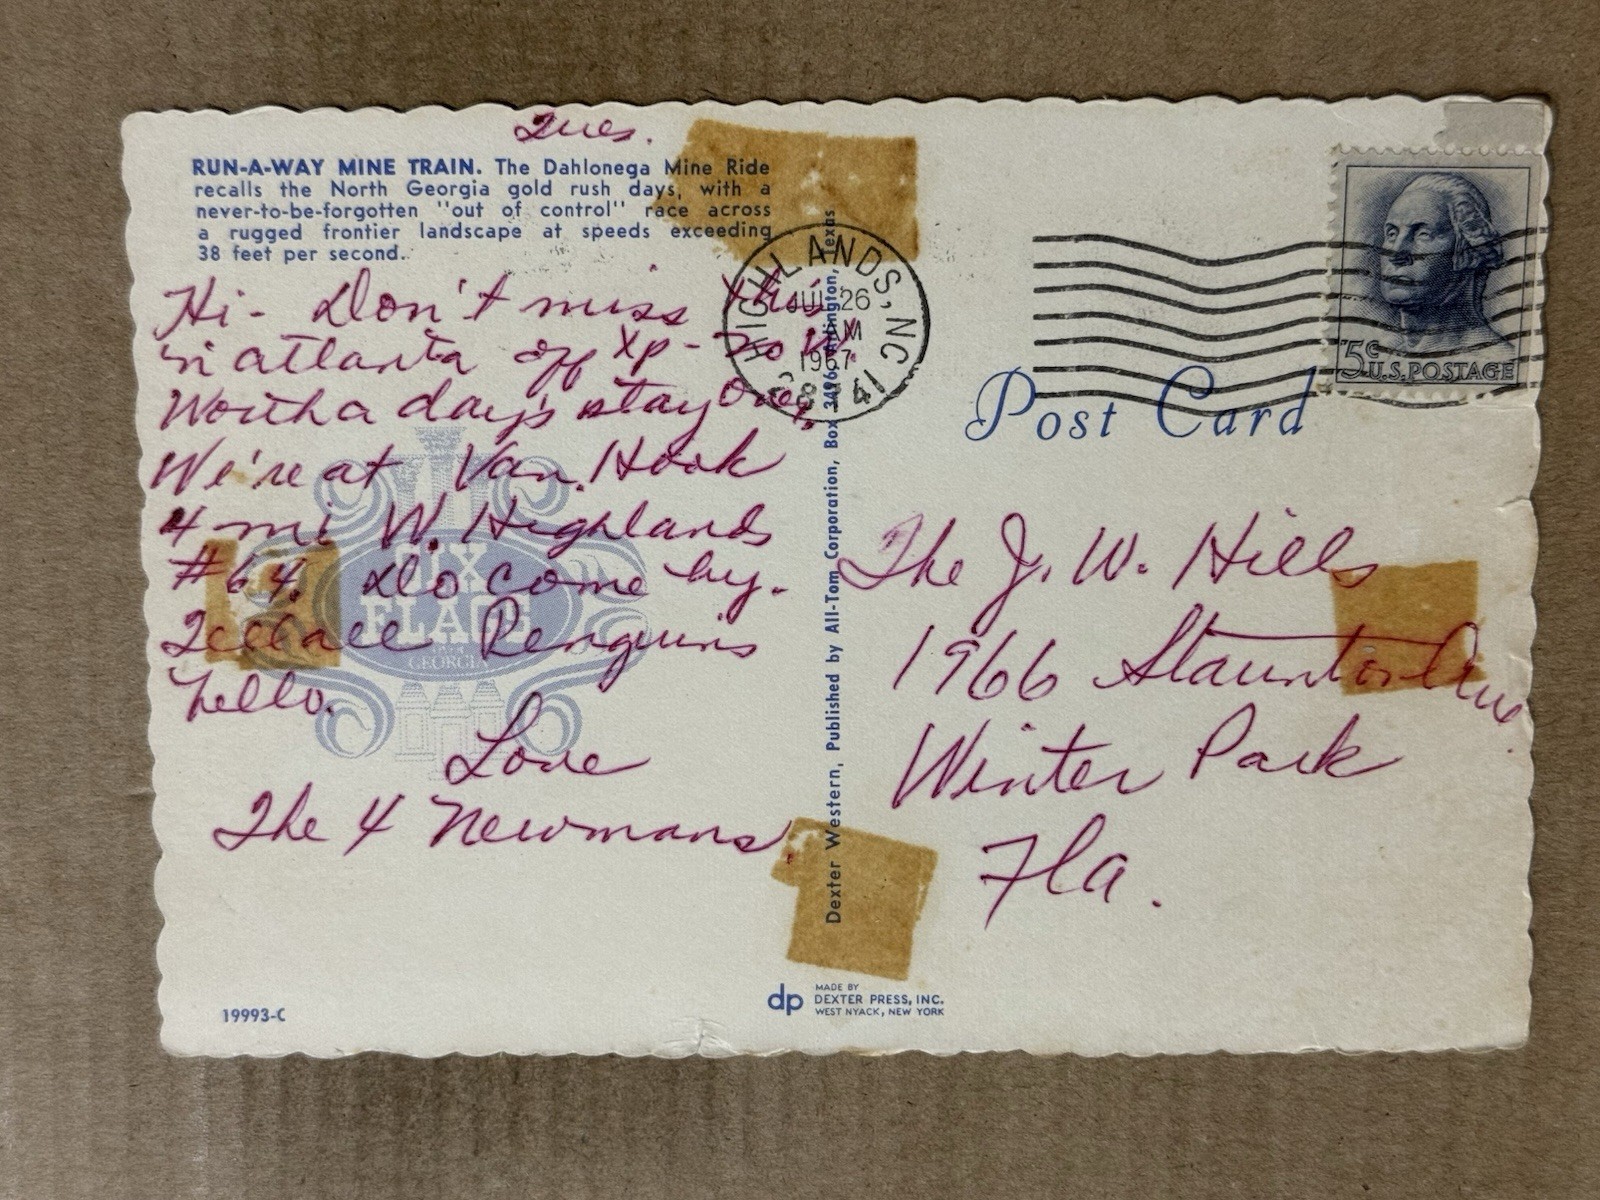 Tues.
RUN-A-WAY MINE TRAIN. The Dahlonega Mine Ride
recalls the North Georgia gold rush days, with a
never-to-be-forgotten "out of control" race across
a rugged frontier landscape at speeds exceeding
38 feet per second.
Hi - Don't miss this
in Atlanta off Xp - 20 W.
Worth a day's stay over.
We're at Van Hook
4 mi W. Highlands
#64. Do come by.
Penguins
hello.
Love
The 4 Newmans
SIX
FLAGS
OVER
GEORGIA
19993-C
Dexter Western, Published by All-Tom Corporation, Box 3496, Arlington, Texas
dp
MADE BY
DEXTER PRESS, INC.
WEST NYACK, NEW YORK
HIGHLANDS, NC
JUL 26
AM
1967
28741
5c
U.S. POSTAGE
Post Card
The J. W. Hills
1966 Staunton Ave.
Winter Park
Fla.